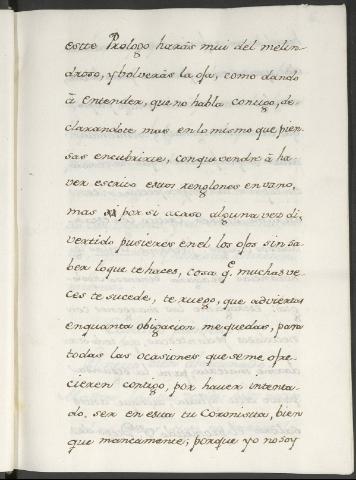 estte Prologo harás mui del melin-
droso, y bolverás la oja, como dando
â entender, que no habla contigo, de-
clarandote mas en lo mismo que pien-
sas encubrirte, conque vendrè â ha
ver escrito estos renglones en vano,
mas si por si acaso alguna vez di-
vertido pusieres en el los ojos sin sa
ber lo que te haces, cosa q.e muchas ve-
ces te sucede, te ruego, que adviertas
en quanta obigacion me quedas, para
todas las ocasiones que se me ofre-
cieren contigo, por haver intenta-
do, ser en esta tu Coronista, bien
que mancamente; porque yo no soy